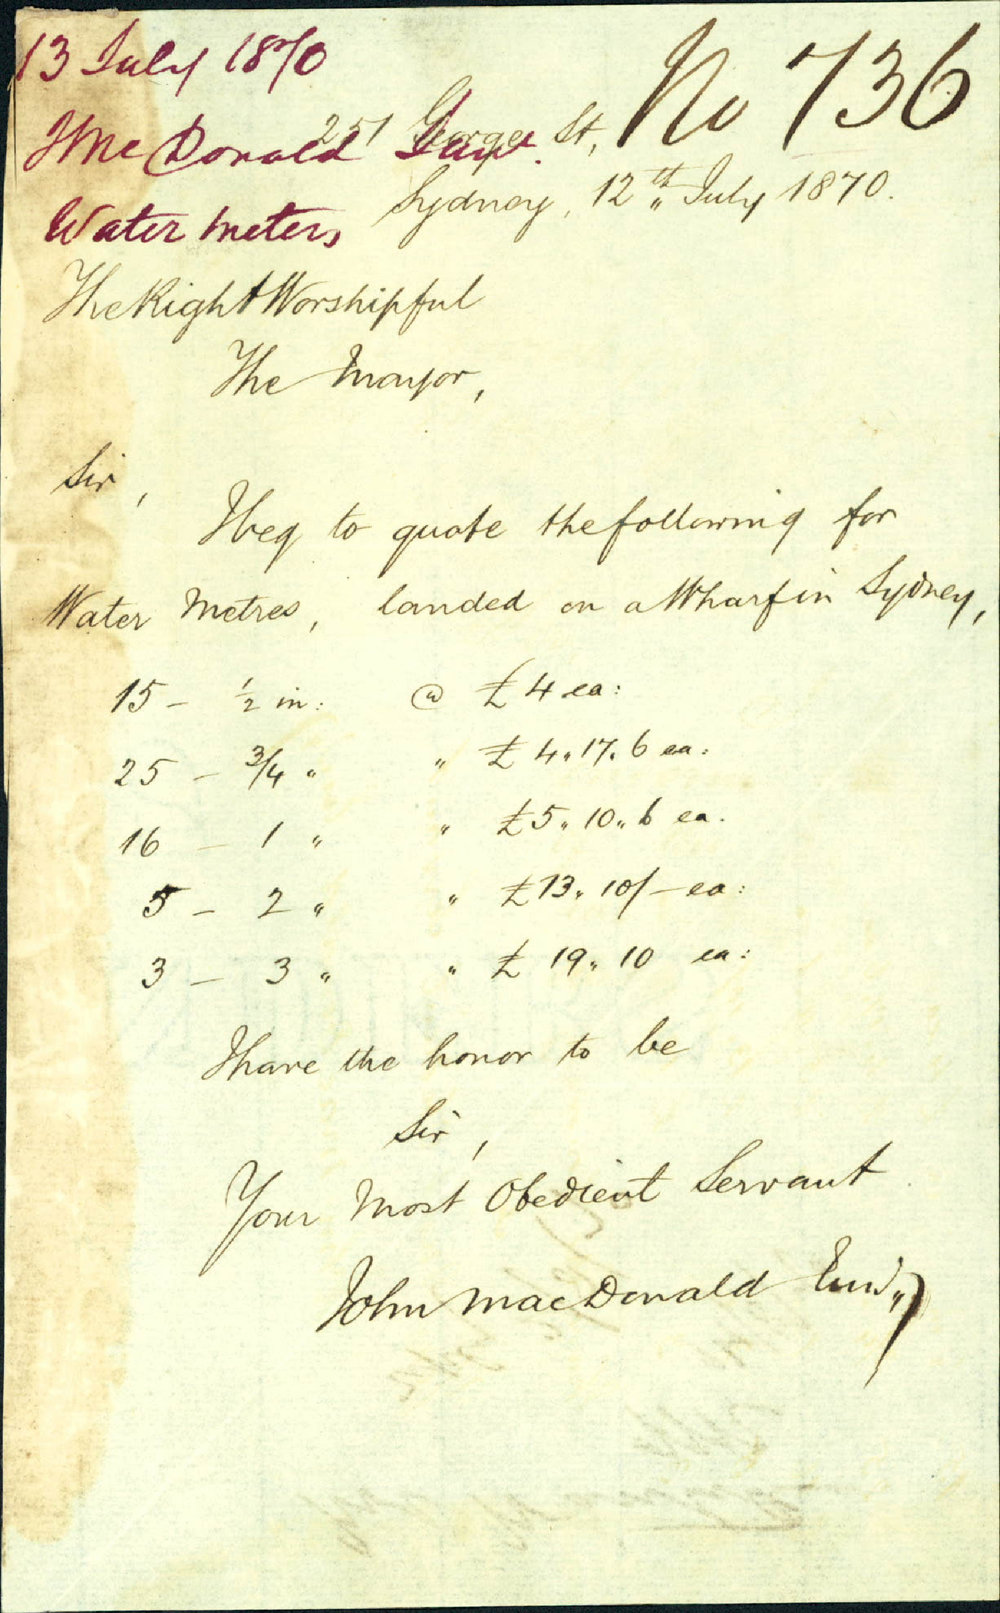 13 July 1870
No 736
J McDonald Junr.
251 George St,
Water meters
Sydney, 12th July 1870.
The Right Worshipful
The Mayor,
Sir,
I beg to quote the following for
Water Metres, landed on a Wharf in Sydney,
15 - 1/2 in: @ £4 ea:
25 - 3/4 " " £4.17.6 ea:
16 - 1 " " £5.10.6 ea.
5 - 2 " " £13.10/- ea:
3 - 3 " " £19.10 ea:
I have the honor to be
Sir,
Your Most Obedient Servant
John MacDonald Junr